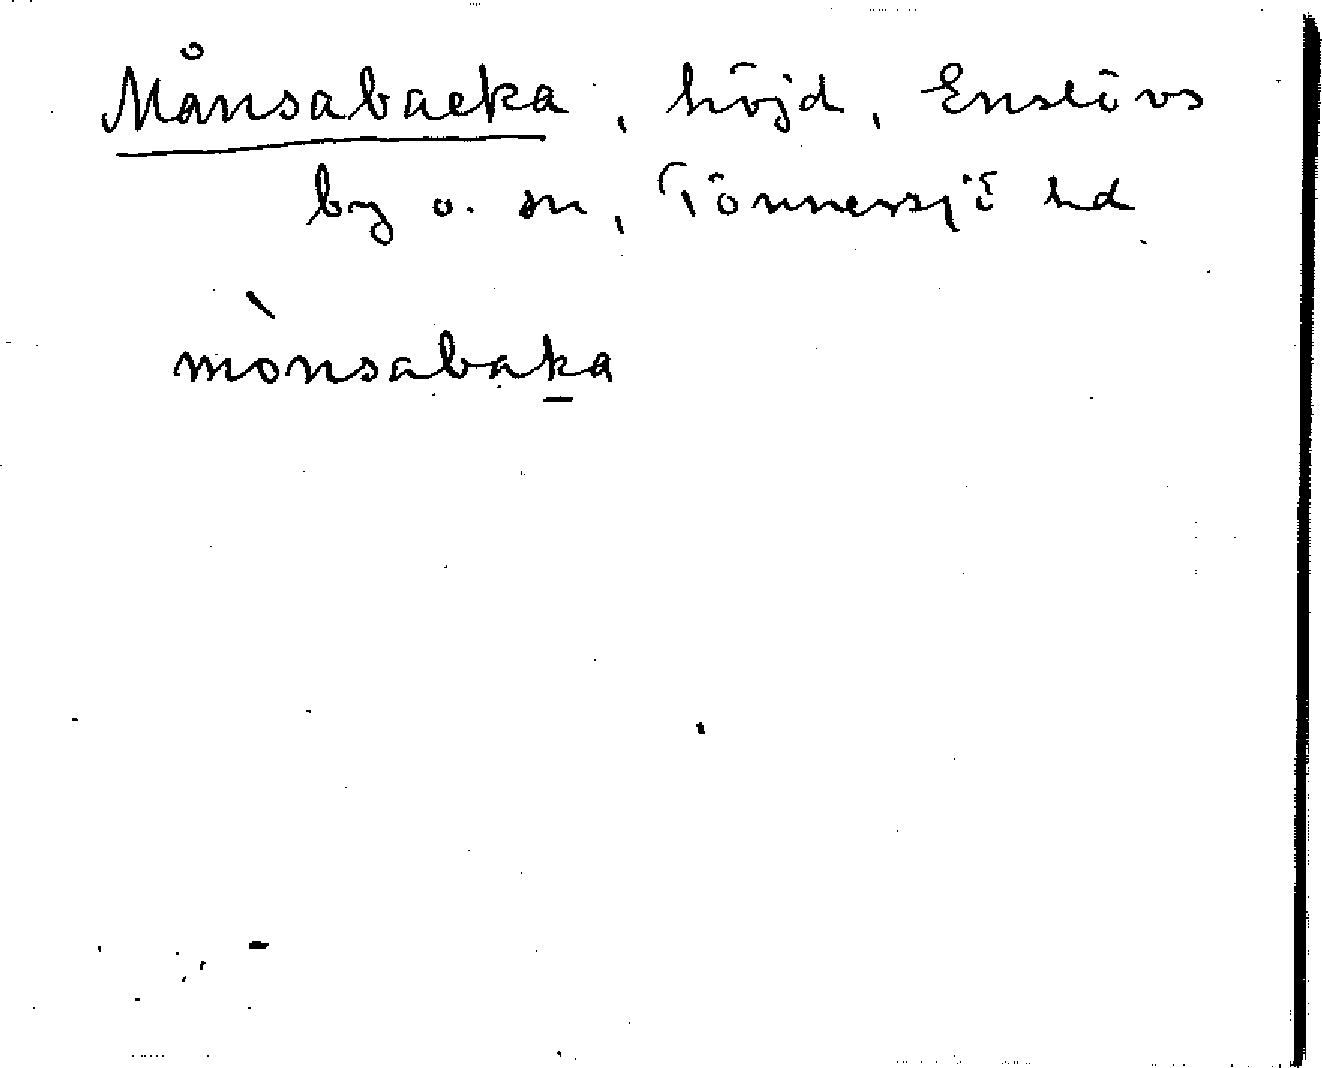 Månsabacka, höjd, Enslövs
by o. sn, Tönnersjö hd
mònsabaka